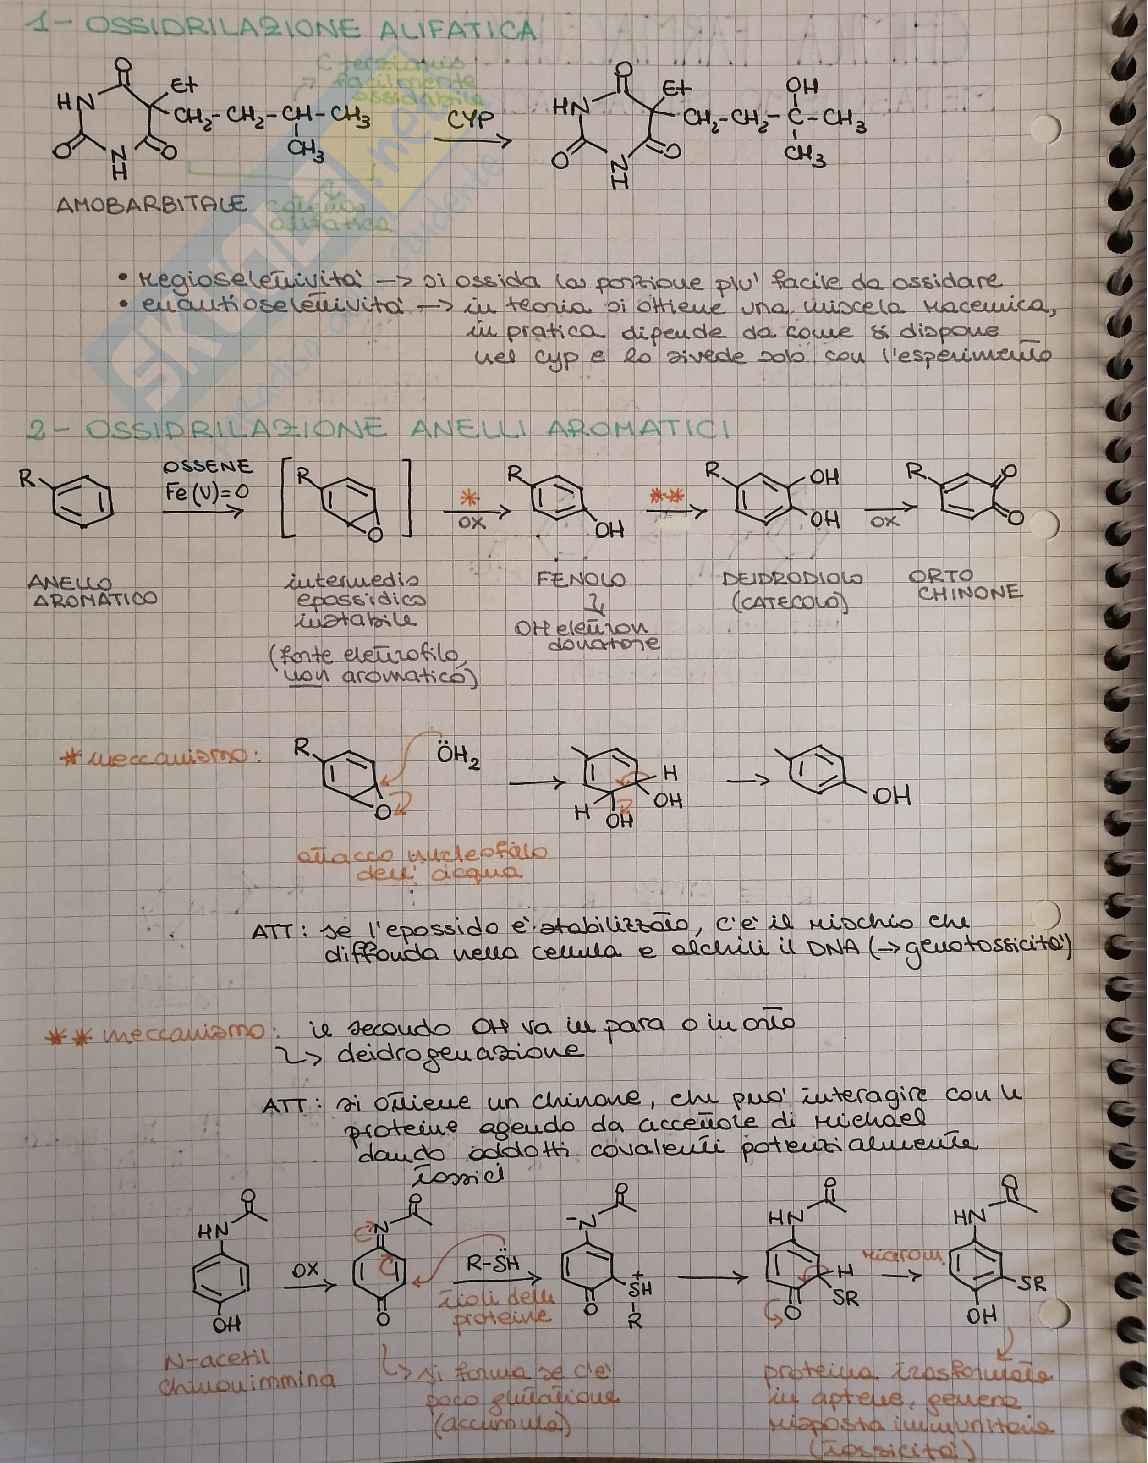 1- OSSIDRILAZIONE ALIFATICA
C terziario
facilmente
ossidabile
HN O Et CH2-CH2-CH-CH3 CH3 O N H O
CYP
HN O Et CH2-CH2-C-CH3 OH CH3 O N H O
AMOBARBITALE
catena
alifatica
• regioselettività -> si ossida la porzione più facile da ossidare
• enantioselettività -> in teoria si ottiene una miscela racemica,
in pratica dipende da come si dispone
nel cyp e lo si vede solo con l'esperimento
2- OSSIDRILAZIONE ANELLI AROMATICI
R OSSENE Fe(V)=O [R O] * OX R OH ** R OH OH OX R O O
ANELLO
AROMATICO
intermedio
epossidico
instabile
(forte elettrofilo,
non aromatico)
FENOLO
OH elettron
donatore
DEIDRODIOLO
(CATECOLO)
ORTO
CHINONE
* meccanismo: R O ÖH2 H OH H OH OH
attacco nucleofilo
dell' acqua
ATT: se l'epossido è stabilizzato, c'è il rischio che
diffonda nella cellula e alchili il DNA (-> genotossicità)
** meccanismo: il secondo OH va in para o in orto
-> deidrogenazione
ATT: si ottiene un chinone, che può interagire con le
proteine agendo da accettore di Michael
dando addotti covalenti potenzialmente
tossici
HN O OH OX N O O R-SH
tioli delle
proteine
-N O O +SH R HN O H SR O riarom. HN O SR OH
N-acetil
chinonimmina
-> si forma se c'è
poco glutatione
(accumula)
proteina trasformata
in aptene, genera
risposta immunitaria
(tossicità)
SKUOLA.net